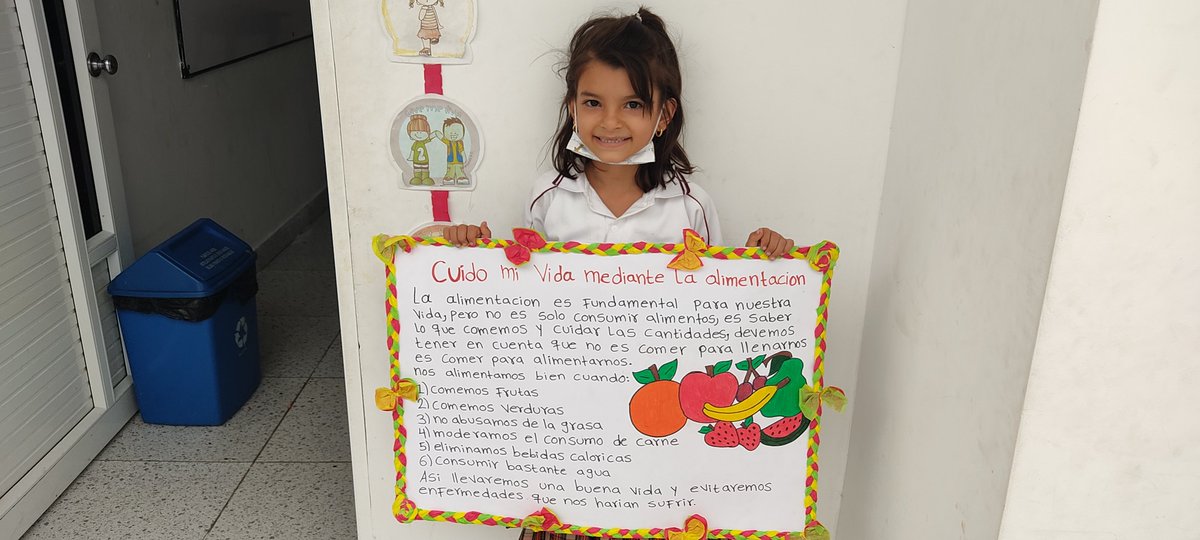 Cuido mi Vida mediante la alimentacion
La alimentacion es fundamental para nuestra
vida, pero no es solo consumir alimentos, es saber
lo que comemos y cuidar las cantidades, devemos
tener en cuenta que no es comer para llenarnos
es comer para alimentarnos.
nos alimentamos bien cuando:
1) comemos frutas
2) comemos verduras
3) no abusamos de la grasa
4) moderamos el consumo de carne
5) eliminamos bebidas caloricas
6) consumir bastante agua
Asi llevaremos una buena vida y evitaremos
enfermedades que nos harian sufrir.
2